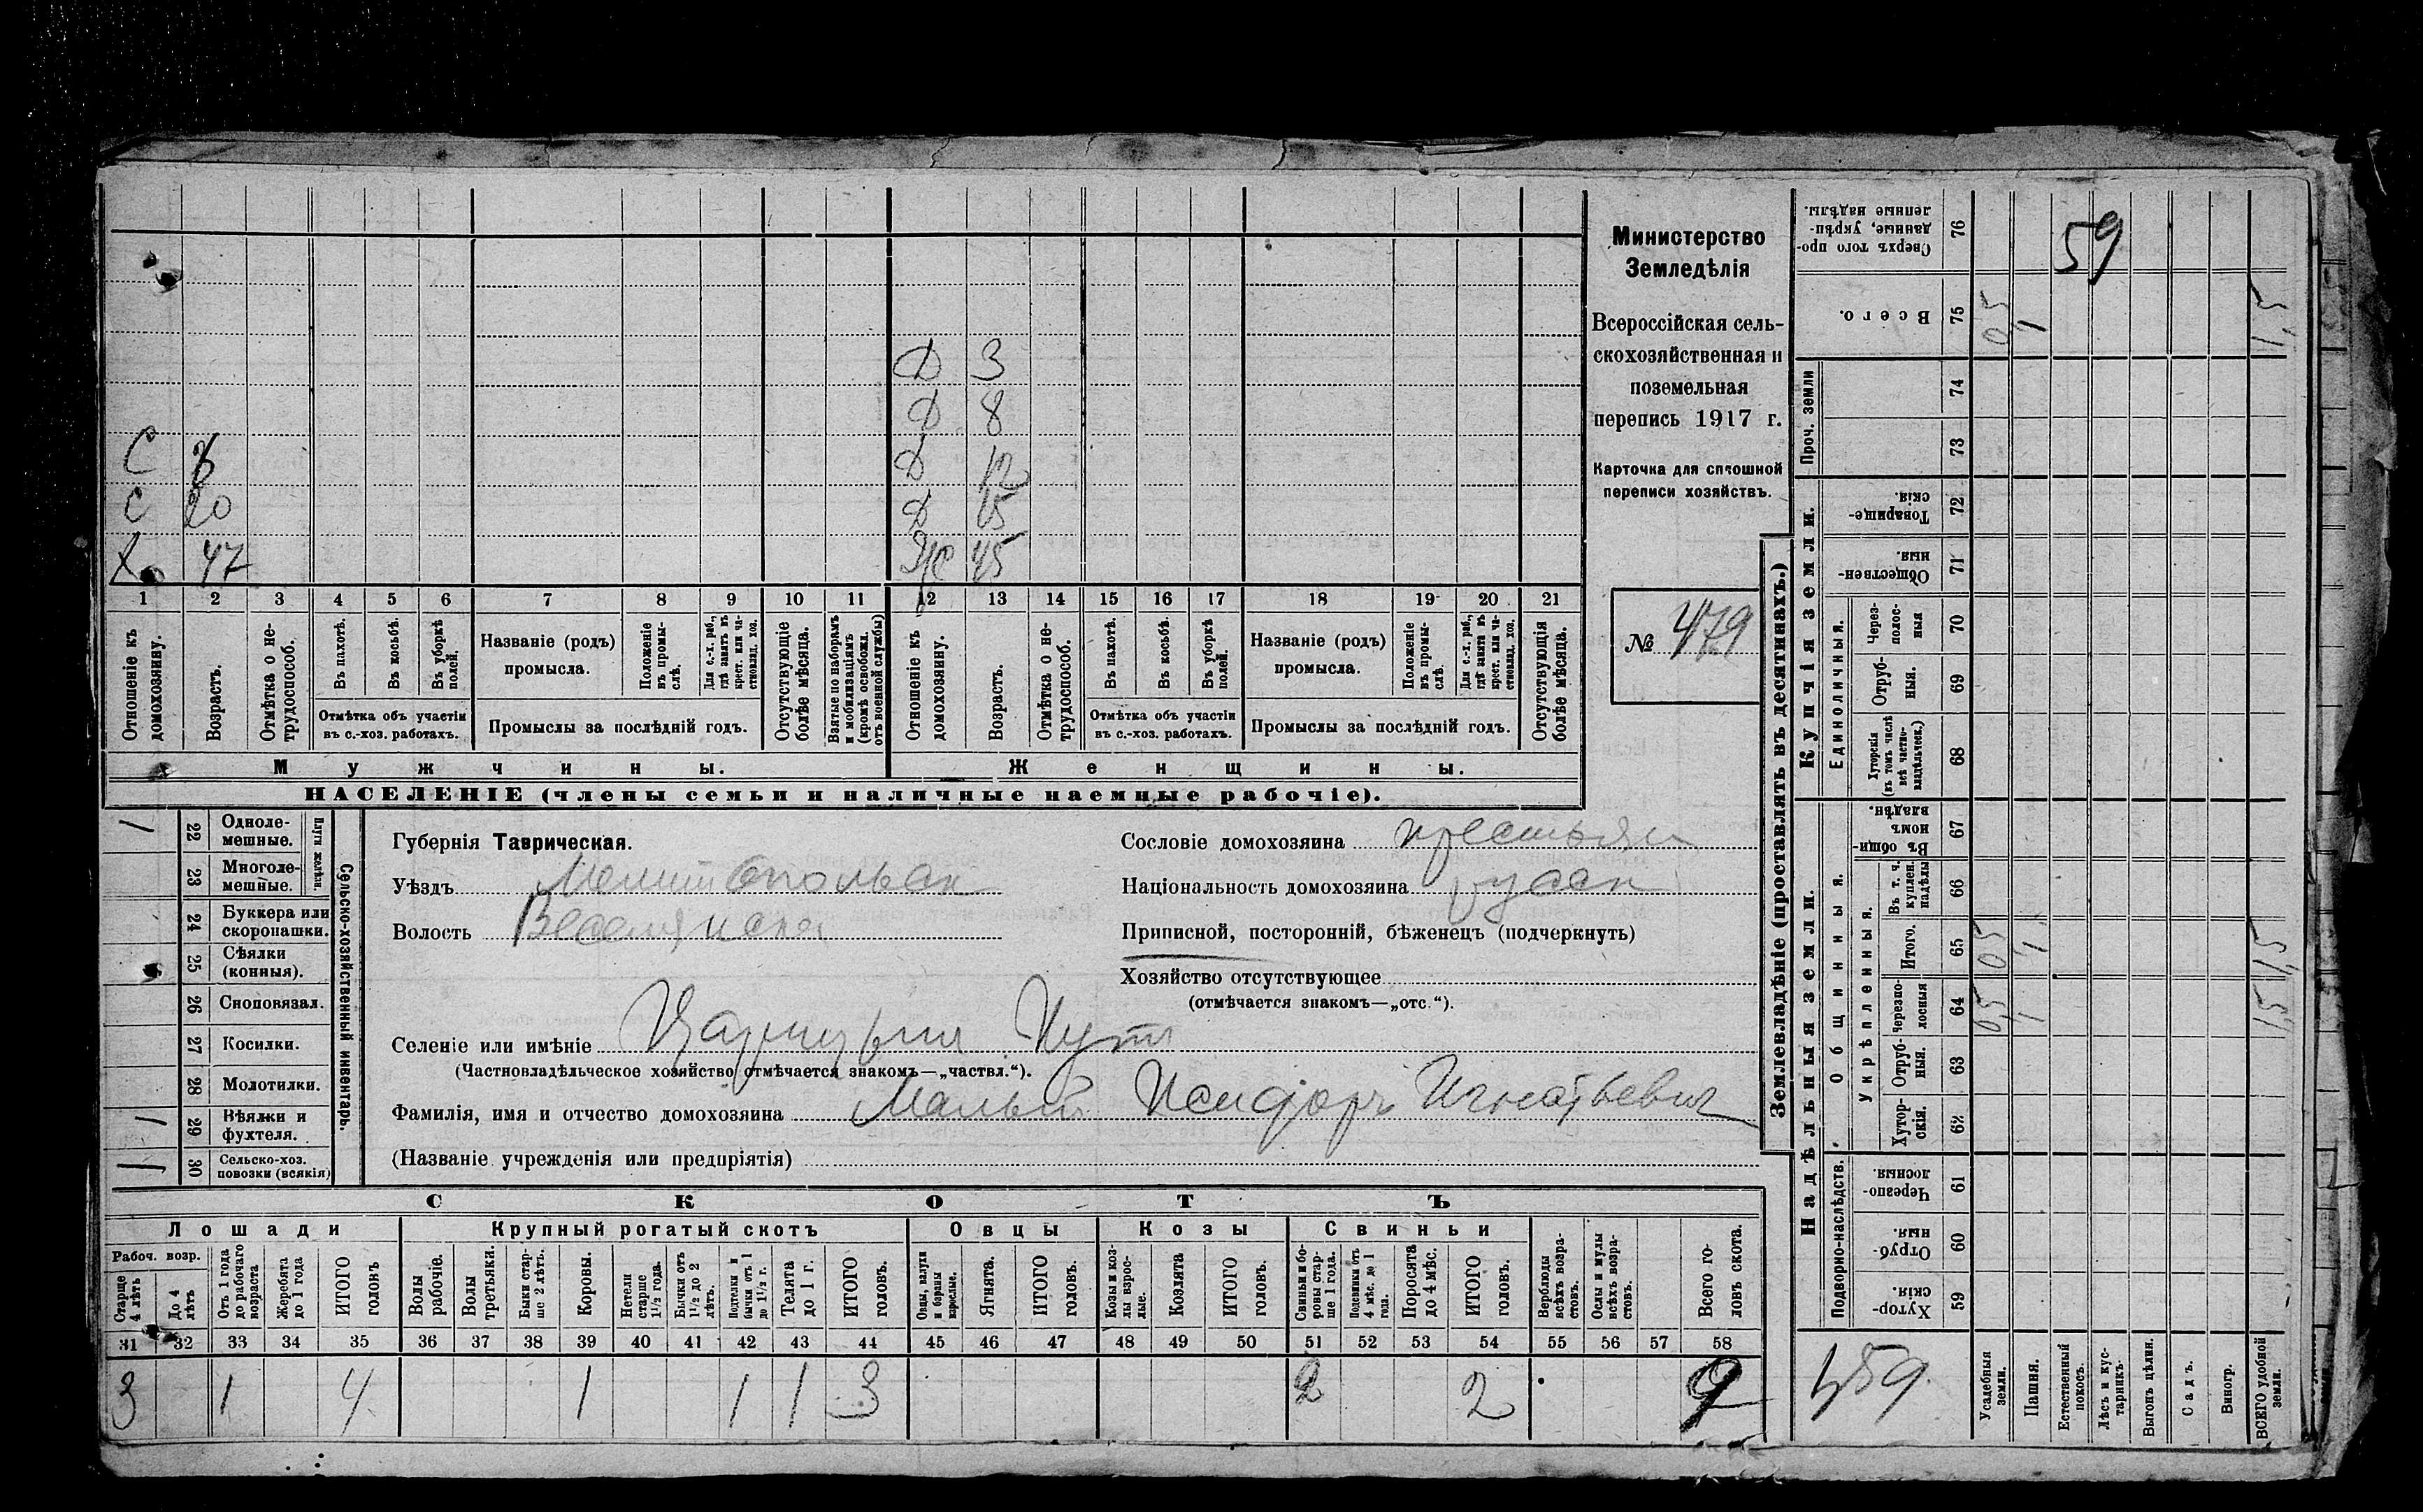 Д 3
Д 8
С 8 Д 12
С 20 Д 15
Х 47 Ж 45
1 2 3 4 5 6 7 8 9 10 11 12 13 14 15 16 17 18 19 20 21
Отношеніе къ домохозяину.
Возрастъ.
Отмѣтка о не-трудоспособ.
Въ пахотѣ.
Въ косьбѣ.
Въ уборкѣ полей.
Отмѣтка объ участіи
въ с.-хоз. работахъ.
Названіе (родъ)
промысла.
Положеніе въ промы-слѣ.
Для с.-х. раб., гдѣ занятъ въ крест. или ча-стновлад. хоз.
Промыслы за послѣдній годъ.
Отсутствующіе болѣе мѣсяца.
Взятые по наборамъ и мобилизаціямъ (кромѣ освобожд. отъ военной службы)
Отношеніе къ домохозяину.
Возрастъ.
Отмѣтка о не-трудоспособ.
Въ пахотѣ.
Въ косьбѣ.
Въ уборкѣ полей.
Отмѣтка объ участіи
въ с.-хоз. работахъ.
Названіе (родъ)
промысла.
Положеніе въ промы-слѣ.
Для с.-х. раб., гдѣ занята въ крест. или ча-стновлад. хоз.
Промыслы за послѣдній годъ.
Отсутствующія болѣе мѣсяца.
Мужчины. Женщины.
НАСЕЛЕНІЕ (члены семьи и наличные наемные рабочіе).
Министерство
Земледѣлія
Всероссійская сель-
скохозяйственная и
поземельная
перепись 1917 г.
Карточка для сплошной
переписи хозяйствъ.
№ 479
Сельско-хозяйственный инвентарь.
Плуги желѣзн.
1 22 Одноле-мешные.
23 Многоле-мешные.
24 Буккера или скоропашки.
25 Сѣялки (конныя).
26 Сноповязал.
27 Косилки.
28 Молотилки.
1 29 Вѣялки и фухтеля.
1 30 Сельско-хоз. повозки (всякія)
Губернія Таврическая.
Уѣздъ Мелитопольск
Волость
Сословіе домохозяина крестьян
Національность домохозяина русск
Приписной, посторонній, бѣженецъ (подчеркнуть)
Хозяйство отсутствующее
(отмѣчается знакомъ—„отс.“).
Селеніе или имѣніе
(Частновладѣльческое хозяйство отмѣчается знакомъ—„частвл.“).
Фамилія, имя и отчество домохозяина Малый Исидоръ Игнатьевич
(Названіе учрежденія или предпріятія)
СКОТЪ
Лошади Крупный рогатый скотъ Овцы Козы Свиньи
Рабоч. возр.
Старше 4 лѣтъ
До 4 лѣтъ
Отъ 1 года до рабочаго возраста
Жеребята до 1 года
ИТОГО головъ
Волы рабочіе.
Волы третьяки.
Быки стар-ше 2 лѣтъ.
Коровы.
Нетели старше 1½ года.
Бычки отъ 1½ до 2 лѣтъ.
Подтелки и бычки отъ 1 до 1½ г.
Телята до 1 г.
ИТОГО головъ.
Овцы, валухи и бараны взрослые.
Ягнята.
ИТОГО головъ.
Козы и коз-лы взрос-лые.
Козлята
ИТОГО головъ.
Свиньи и бо-ровы стар-ше 1 года.
Подсвинки отъ 4 мѣс. до 1 года.
Поросята до 4 мѣс.
ИТОГО головъ.
Верблюды всѣхъ возра-стовъ.
Ослы и мулы всѣхъ возра-стовъ.
Всего го-ловъ скота.
31 32 33 34 35 36 37 38 39 40 41 42 43 44 45 46 47 48 49 50 51 52 53 54 55 56 57 58
3 1 4 1 1 1 3 2 2 9
Землевладѣніе (проставлять въ десятинахъ.)
Надѣльныя земли. Купчія земли.
Проч. земли
Сверхъ того про-данные, укрѣп-ленные надѣлы. 76
59
Всего. 75 0,5 1 1,5
74
73
Товарище-скія. 72
Обществен-ныя. 71
Единоличныя.
Через-полос-ныя 70
Отруб-ныя. 69
Хуторскія (въ томъ числѣ всѣ частно-владѣльческ.) 68
Общинныя.
Въ общин-номъ владѣн. 67
Укрѣпленныя.
Въ т. ч. куплен. надѣлы 66
Итого. 65 0,5 1 1,5
Черезпо-лосныя 64 0,5 1 1,5
Отруб-ныя. 63
Хутор-скія. 62
Подворно-наслѣдств.
Черезпо-лосныя 61
Отруб-ныя. 60
Хутор-скія. 59
459
Усадебныя земли.
Пашня.
Естественный покосъ.
Лѣсъ и кус-тарникъ.
Выгонъ цѣлин.
Садъ.
Виногр.
ВСЕГО удобной земли.